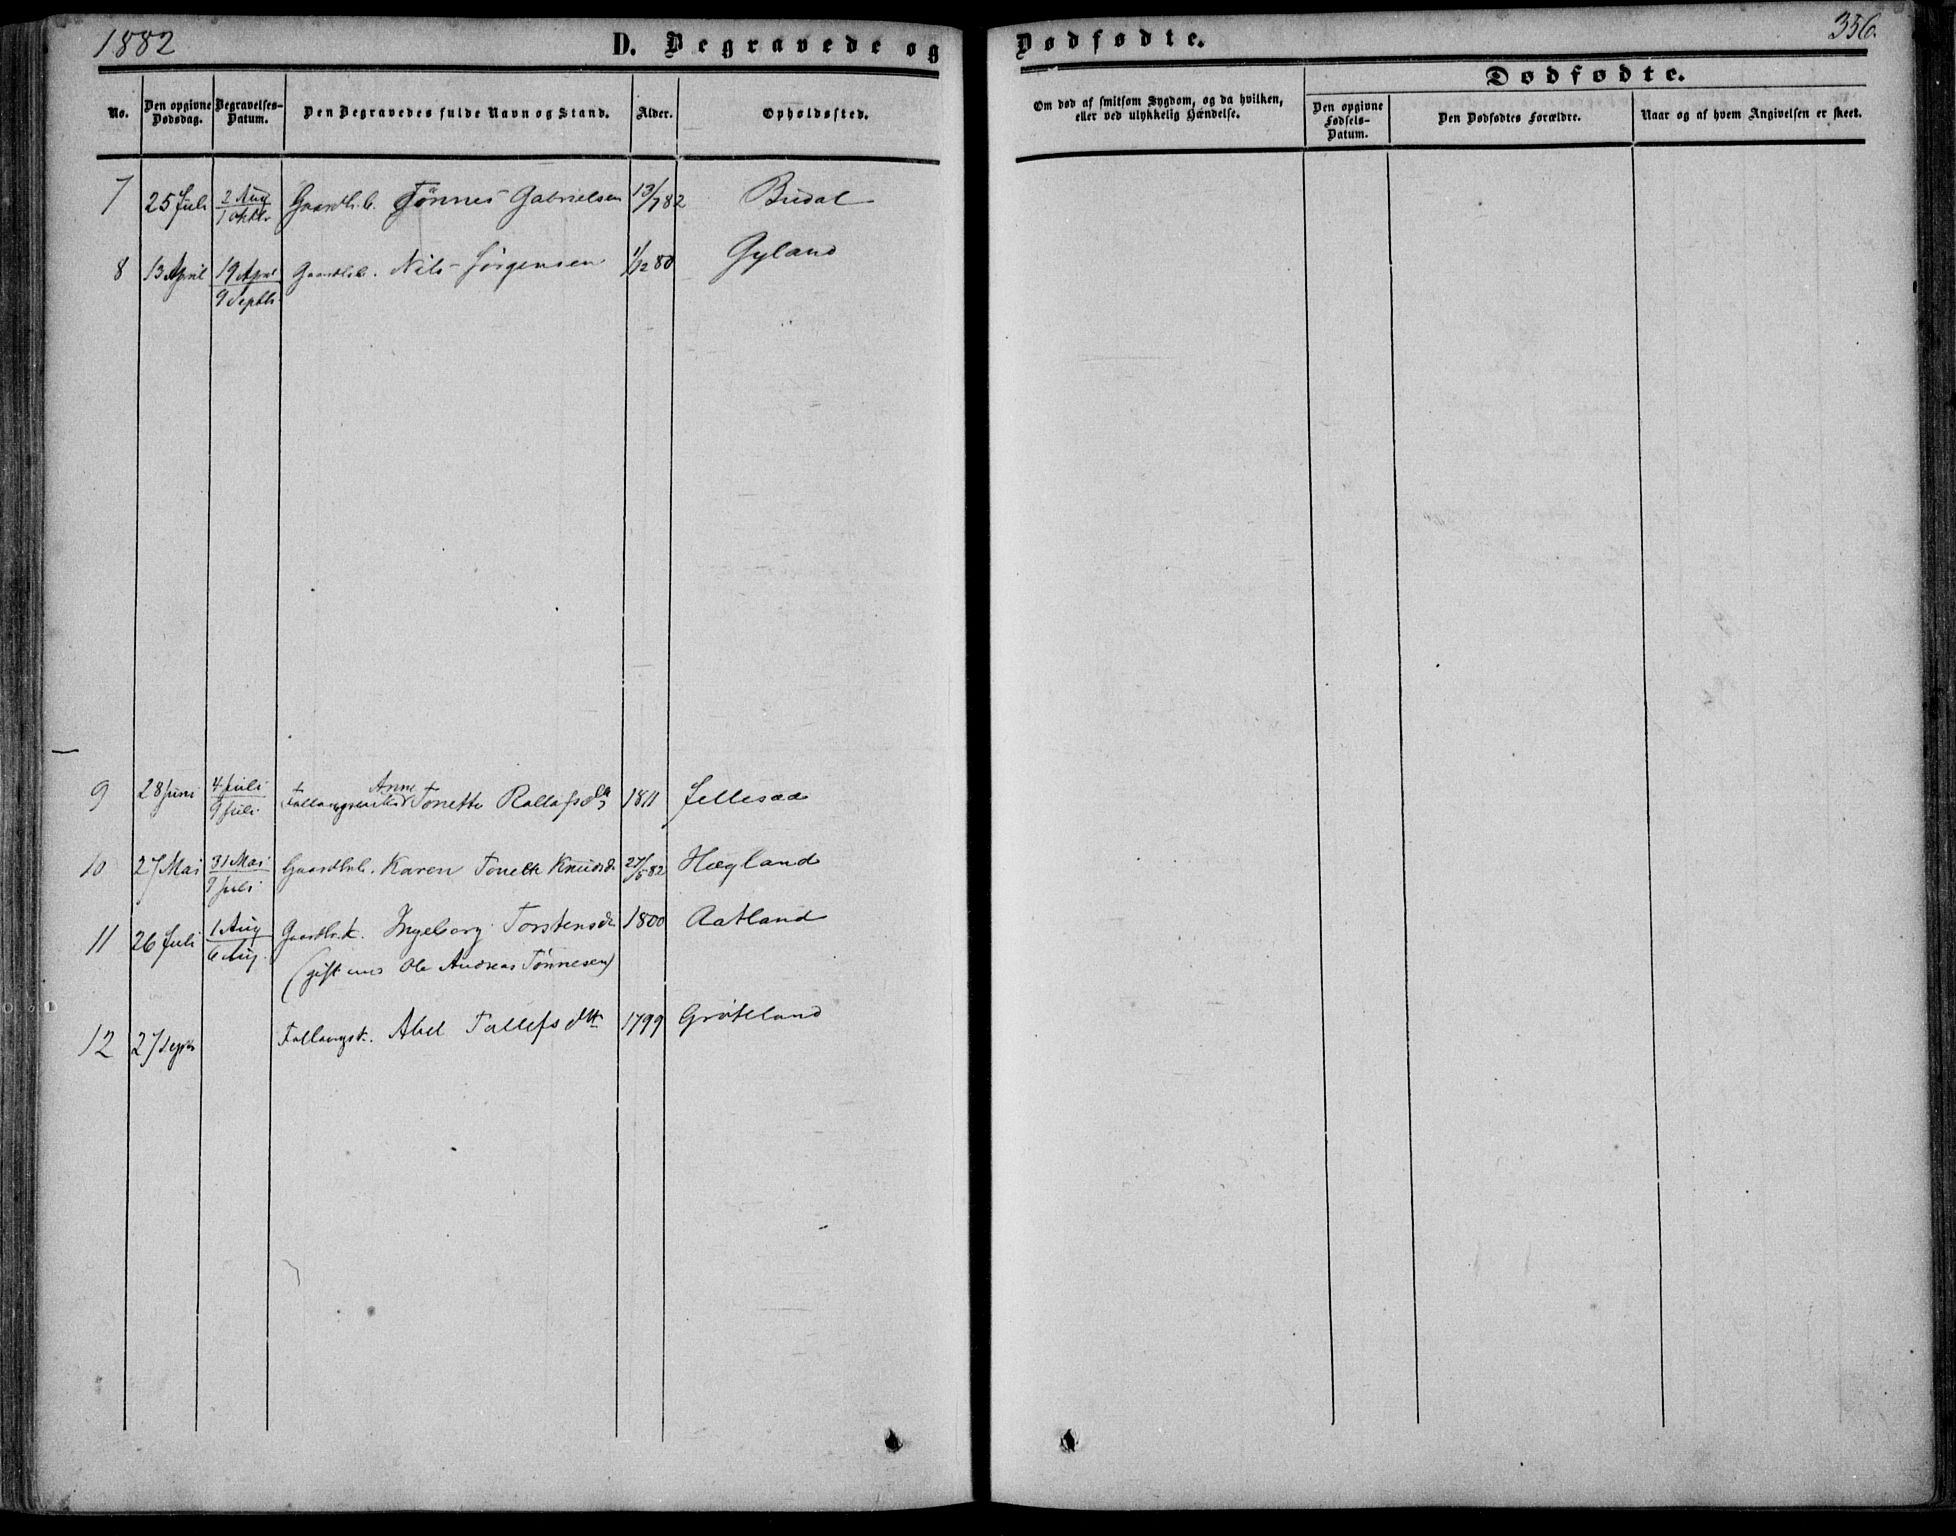 1882 D. Begravede og Dødfødte. 356.
Dødfødte.
No. Den opgivne Dødsdag. Begravelses-Datum. Den Begravedes fulde Navn og Stand. Alder. Opholdssted. Om død af smitsom Sygdom, og da hvilken, eller ved ulykkelig Hændelse. Den opgivne Fødsels-Datum. Den Dødfødtes Forældre. Naar og af hvem Angivelsen er skeet.
7 25 Juli 2 Aug / 1 Oktbr Gaardb. b. Tönnes Gabrielsen 13/7 82 Budal
8 13 April 19 April / 9 Septbr Gaardb. b. Nils Jörgensen 1/12 80 Gyland
9 28 Juni 4 Juli / 9 Juli Anne Tonette 1811
10 27 Mai 31 Mai / 9 Juli Karen Tonette Knudsd. 27/5 82 Hægland
11 26 Juli 1 Aug / 6 Aug. Gaardbr. k. Ingeborg Torstensd. 1800 Aatland
(gift med Ole Andreas Tönnesen)
12 27 Septbr Abel Tallefsdtr 1799